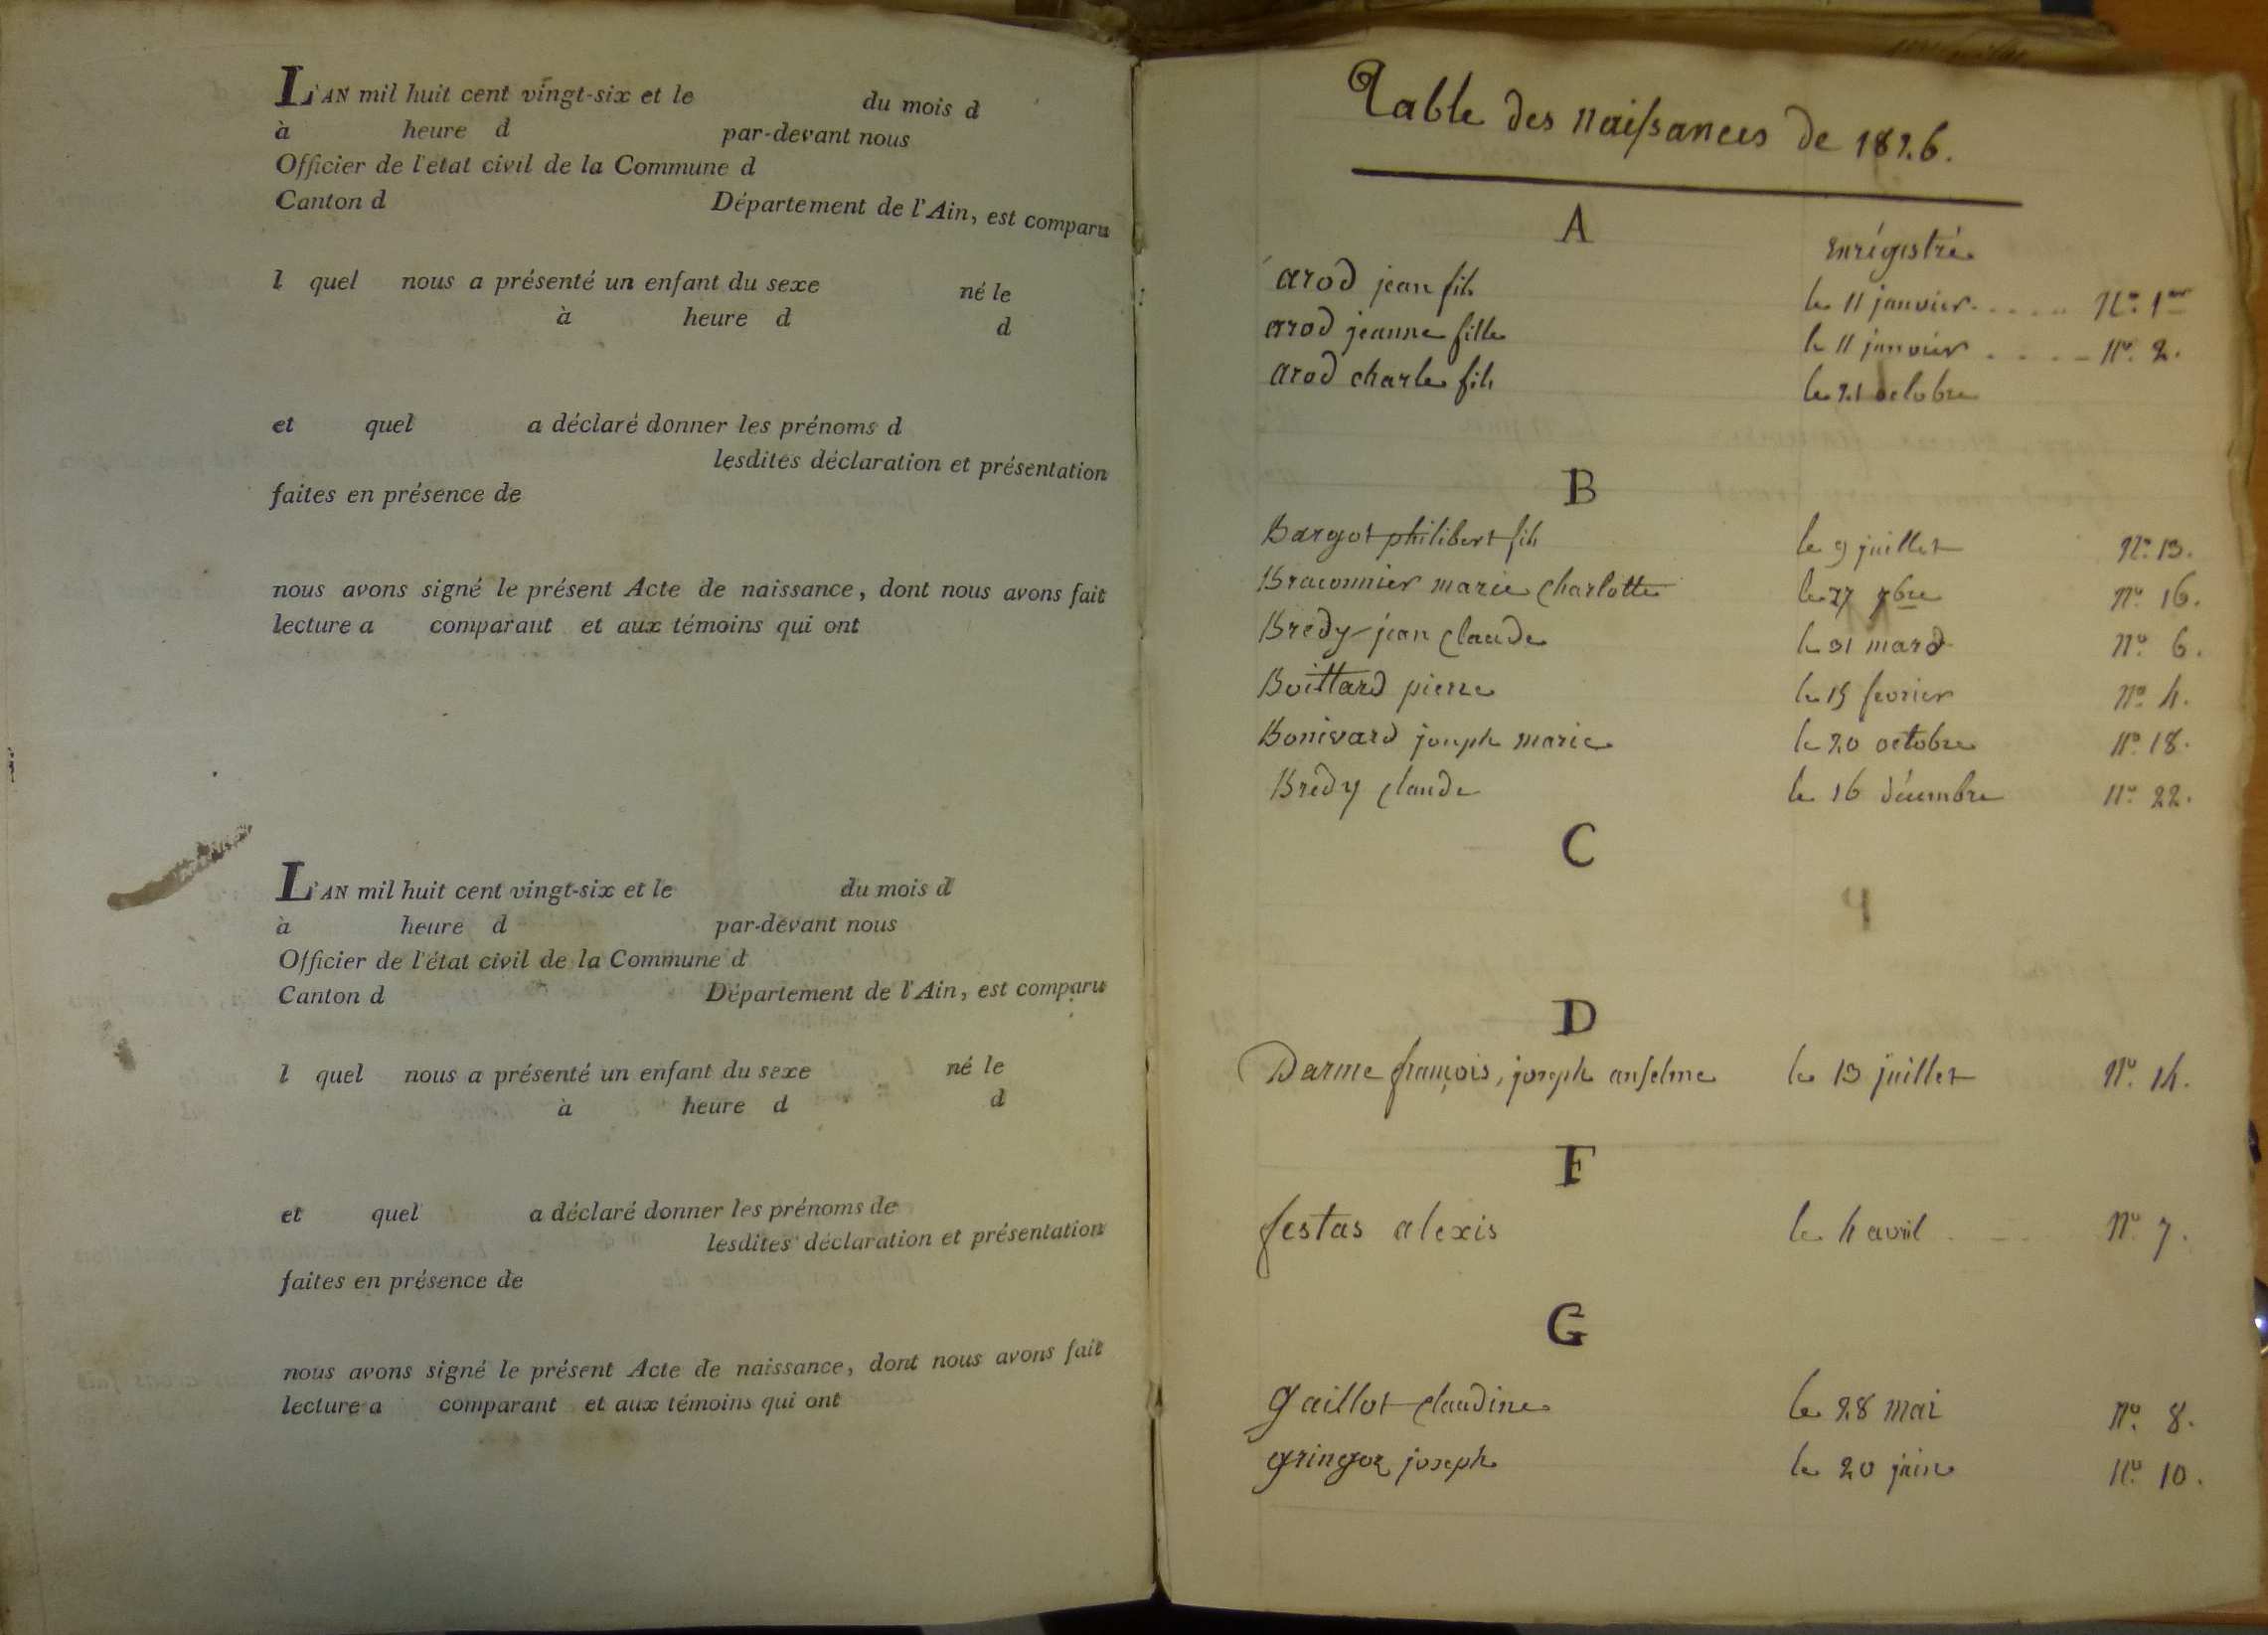 L'AN mil huit cent vingt-six et le du mois d
à heure d par-devant nous
Officier de l'état civil de la Commune d
Canton d Département de l'Ain, est comparu
l quel nous a présenté un enfant du sexe né le
à heure d d
et quel a déclaré donner les prénoms d
lesdites déclaration et présentation
faites en présence de
nous avons signé le présent Acte de naissance, dont nous avons fait
lecture a comparant et aux témoins qui ont
L'AN mil huit cent vingt-six et le du mois d
à heure d par-devant nous
Officier de l'état civil de la Commune d
Canton d Département de l'Ain, est comparu
l quel nous a présenté un enfant du sexe né le
à heure d d
et quel a déclaré donner les prénoms de
lesdites déclaration et présentation
faites en présence de
nous avons signé le présent Acte de naissance, dont nous avons fait
lecture a comparant et aux témoins qui ont
Table des naissances de 1826.
A
enrégistré
arod jean fils le 11 janvier..... No. 1er
arod jeanne fille le 11 janvier.... No. 2.
arod charle fils le 21 octobre
B
Bargot philibert fils le 9 juillet No. 13.
Braconnier marie charlotte le 27 7bre No. 16.
Bredy jean claude le 31 mars No. 6.
Boittard pierre le 15 fevrier No. 4.
Bonivard joseph marie le 20 octobre No. 18.
Bredy claude le 16 décembre No. 22.
C
D
Darme françois, joseph anselme le 13 juillet No. 14.
F
festas alexis le 4 avril No. 7.
G
gaillot claudine le 28 mai No. 8.
gringoz joseph le 20 juin No. 10.